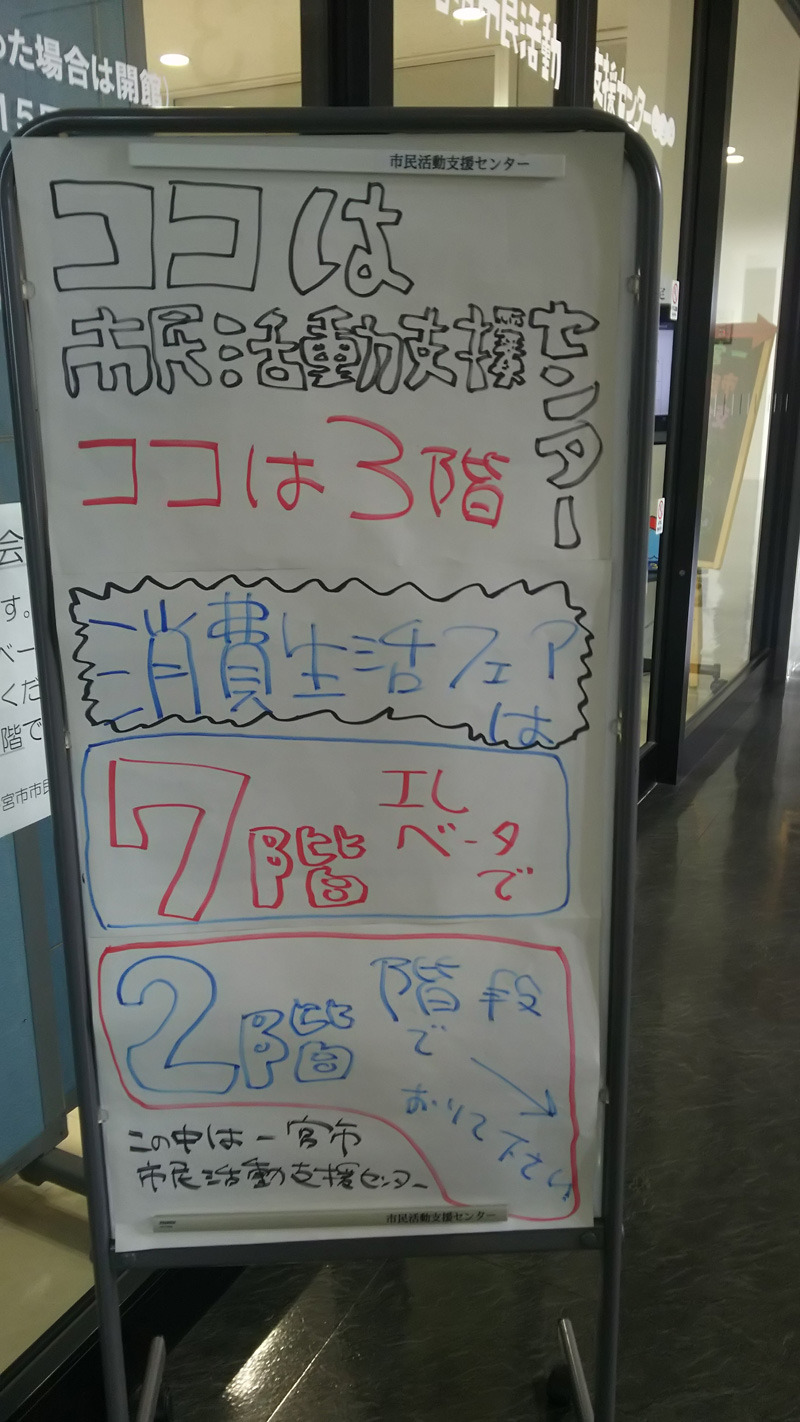 った場合は開館
市民活動
支援センター
市民活動支援センター
ココは
市民活動支援センター
ココは3階
消費生活フェア
は
7階
エレ
ベータ
で
2階
階段
で
おりて下さい
この中は一宮市
市民活動支援センター
市民活動支援センター
会
す。
ベー
くだ
階で
宮市市民